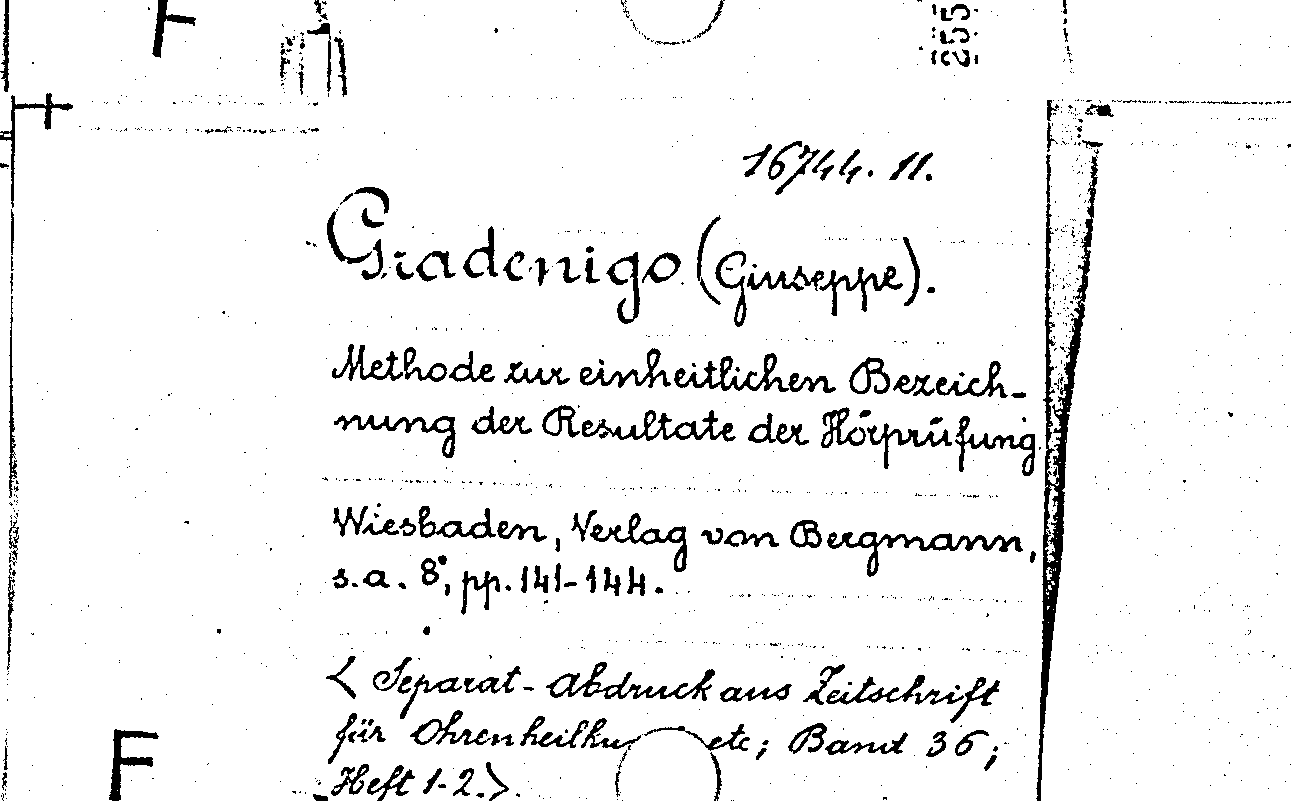 F
255
16744. 11.
Gradenigo (Giuseppe).
Methode zur einheitlichen Bezeich-
nung der Resultate der Hörprüfung
Wiesbaden, Verlag von Bergmann,
s.a. 8°, pp. 141-144.
< Separat-Abdruck aus Zeitschrift
für etc; Band 36;
F
Heft 1-2.>.